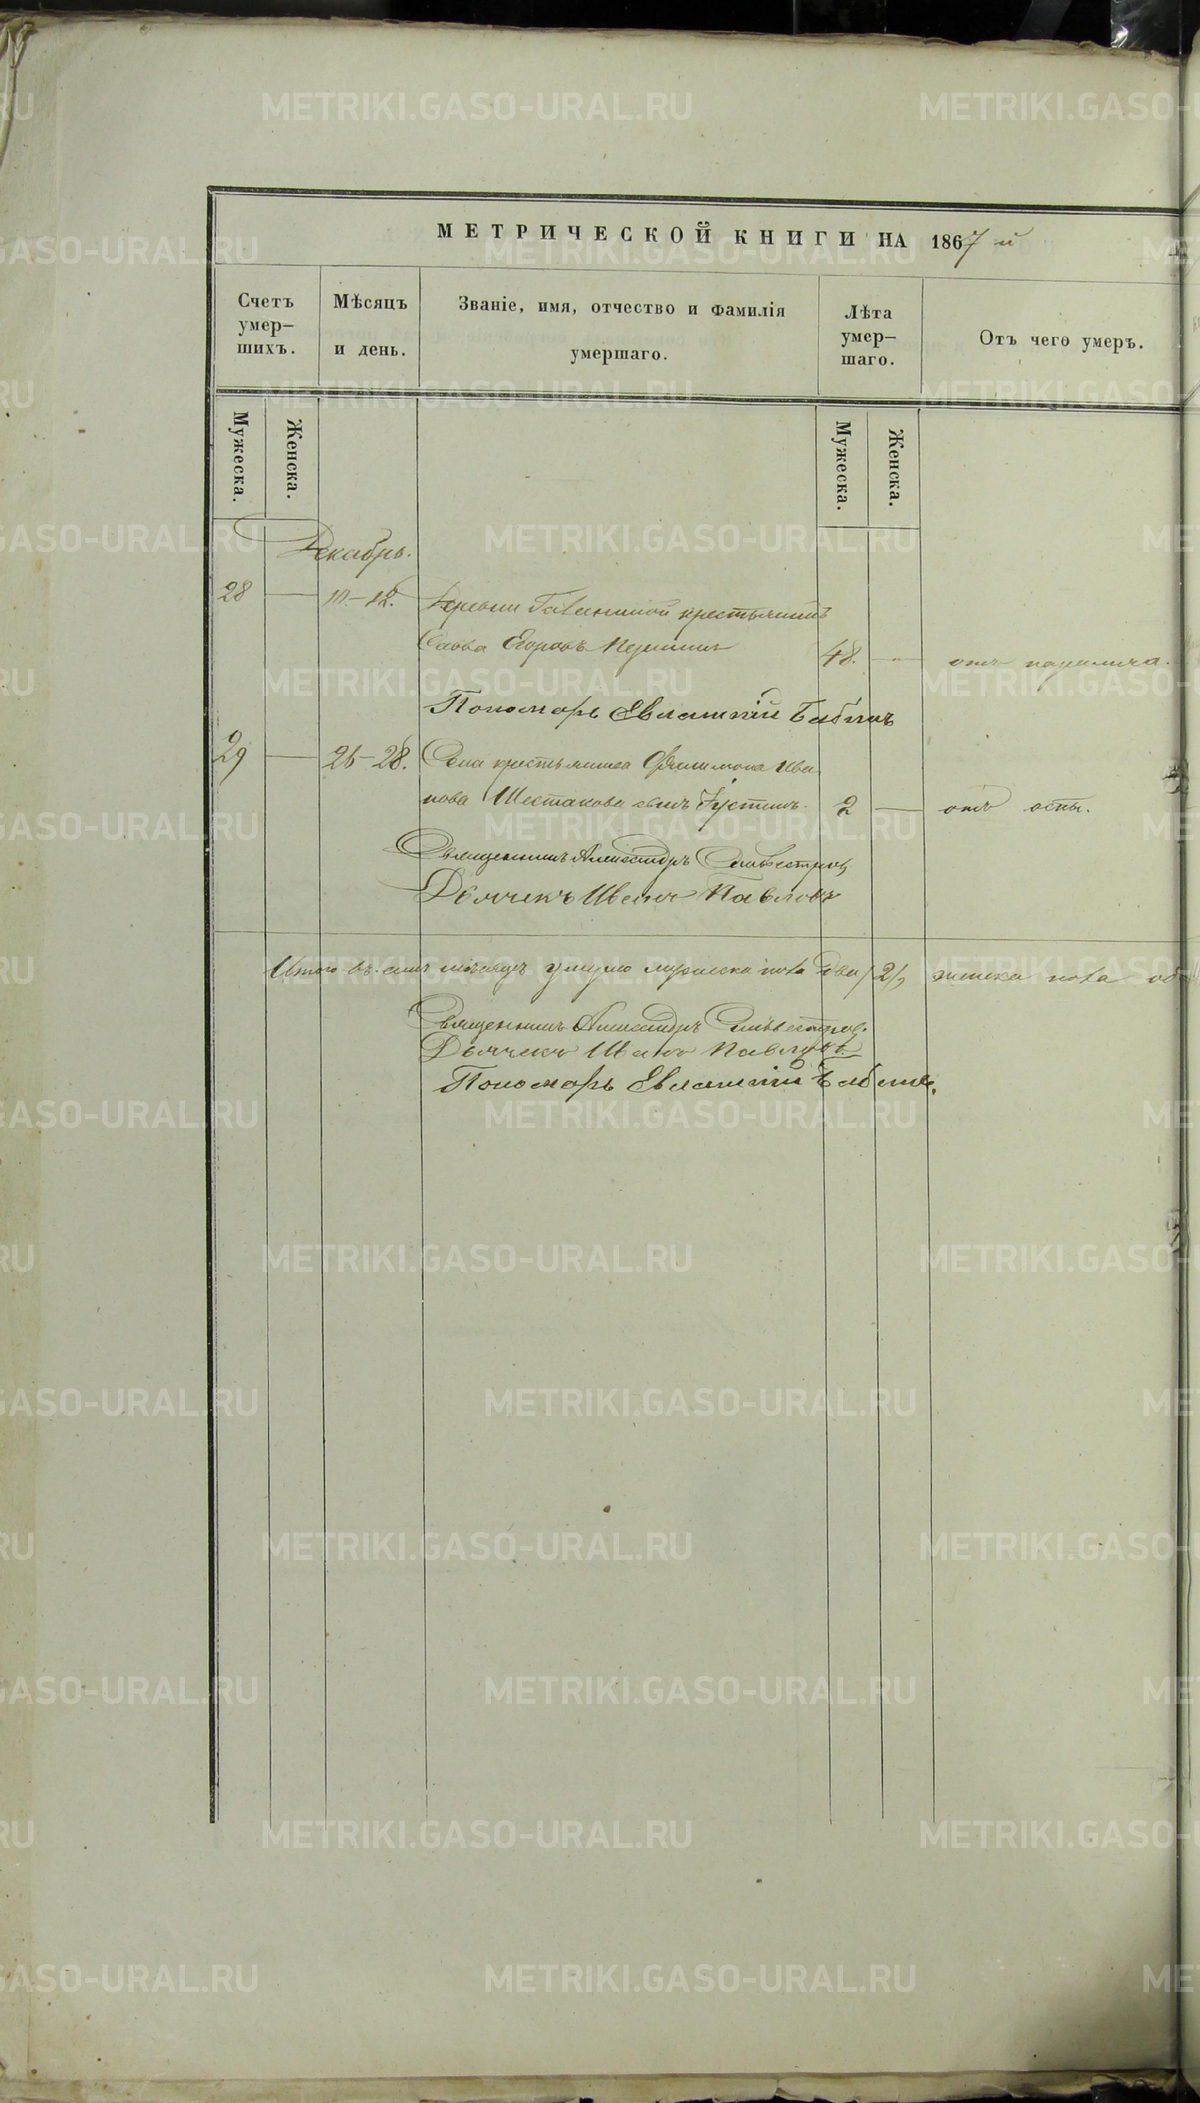 МЕТРИЧЕСКОЙ КНИГИ НА 1867 й
Счетъ умер-шихъ.
Мѣсяцъ и день.
Званіе, имя, отчество и фамилія умершаго.
Лѣта умер-шаго.
Отъ чего умеръ.
Мужеска.
Женска.
Мужеска.
Женска.
Декабрь.
28 — 10-12. Деревни крестьянинъ
Савва Егоровъ 48. — отъ паралича.
Пономарь Евлампій Бабинъ
29 — 26-28. Села крестьянина Филимона Ива
нова Шестакова сынъ Іустинъ. 2 — отъ оспы.
Священникъ Александръ Сильвестровъ
Дьячекъ Иванъ Павловъ
Итого въ семъ месяце умерло мужеска пола два /2/, женска пола
Священникъ Александръ Сильвестровъ
Дьячекъ Иванъ Павловъ.
Пономарь Евлампій Бабинъ.
METRIKI.GASO-URAL.RU